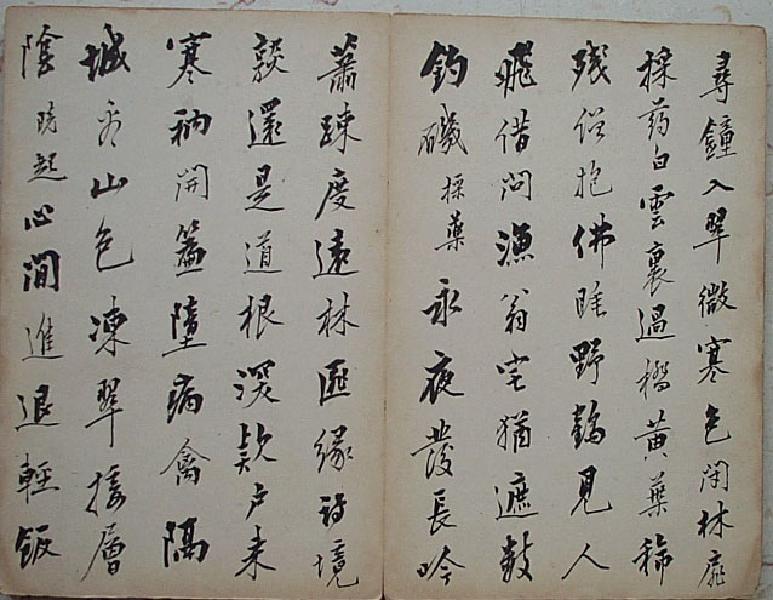 尋鐘入翠微寒色閉林扉
採药白雲裏過橋黃葉稀
殘僧抱佛睡野鶴見人
飛借問漁翁宅猶遮數
釣磯採藥永夜發長吟
蕭踈度遠林匪緣詩境
談還是道根深款戶來
寒衲開墮病禽隔
城看山色凍翠接層
陰晴起心間進退輕